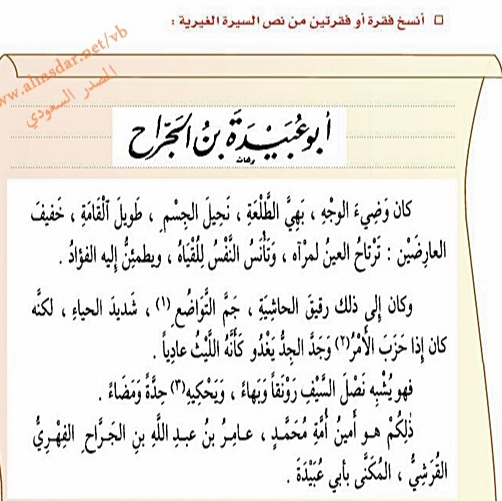 □ أنسخ فقرة أو فقرتين من نص السيرة الغيرية :
www.almasdar.net/vb
المصدر السعودي
أبو عُبَيْدَة بنُ الجَرّاح
كان وَضِيءَ الوجْهِ ، بَهِيَّ الطَّلْعَةِ ، نَحِيلَ الجِسْمِ ، طَوِيلَ الْقَامَةِ ، خَفِيفَ
العارِضَيْن : تَرْتاحُ العينُ لمرْآه ، وَتَأْنَسُ النَّفْسُ لِلُقْيَاهُ ، ويطمئِنُّ إليه الفؤادُ .
وكان إلى ذلك رقيقَ الحاشِيَةِ ، جَمَّ التَّوَاضُعِ (١) ، شَديدَ الحياءِ ، لكنَّه
كان إذا حَزَبَ الأَمْرُ (٢) وَجَدَّ الجِدُّ يَغْدُو كَأَنَّهُ اللَّيْثُ عادِياً .
فهو يُشْبِه نَصْلَ السَّيْفِ رَوْنَقاً وَبَهاءً ، وَيَحْكِيهِ (٣) حِدَّةً وَمَضَاءً .
ذٰلِكُمْ هـو أمينُ أُمَّةِ مُحَمَّـدٍ ، عـامِـرُ بنُ عبـدِ اللَّهِ بنِ الجَـرَّاحِ الفِهْـرِيُّ
القُرَشِيُّ ، المُكَنَّى بأبي عُبَيْدَةَ .